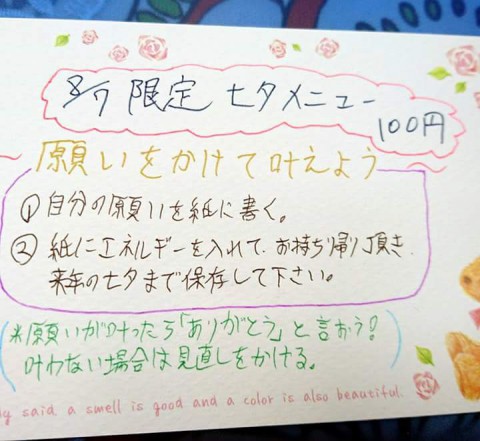 8/7 限定 七夕メニュー
100円
願いをかけて叶えよう
① 自分の願いを紙に書く。
② 紙にエネルギーを入れて、お持ち帰り頂き、
来年の七夕まで保存して下さい。
(※願いが叶ったら「ありがとう」と言おう!
叶わない場合は見直しをかける。)
said a smell is good and a color is also beautiful.